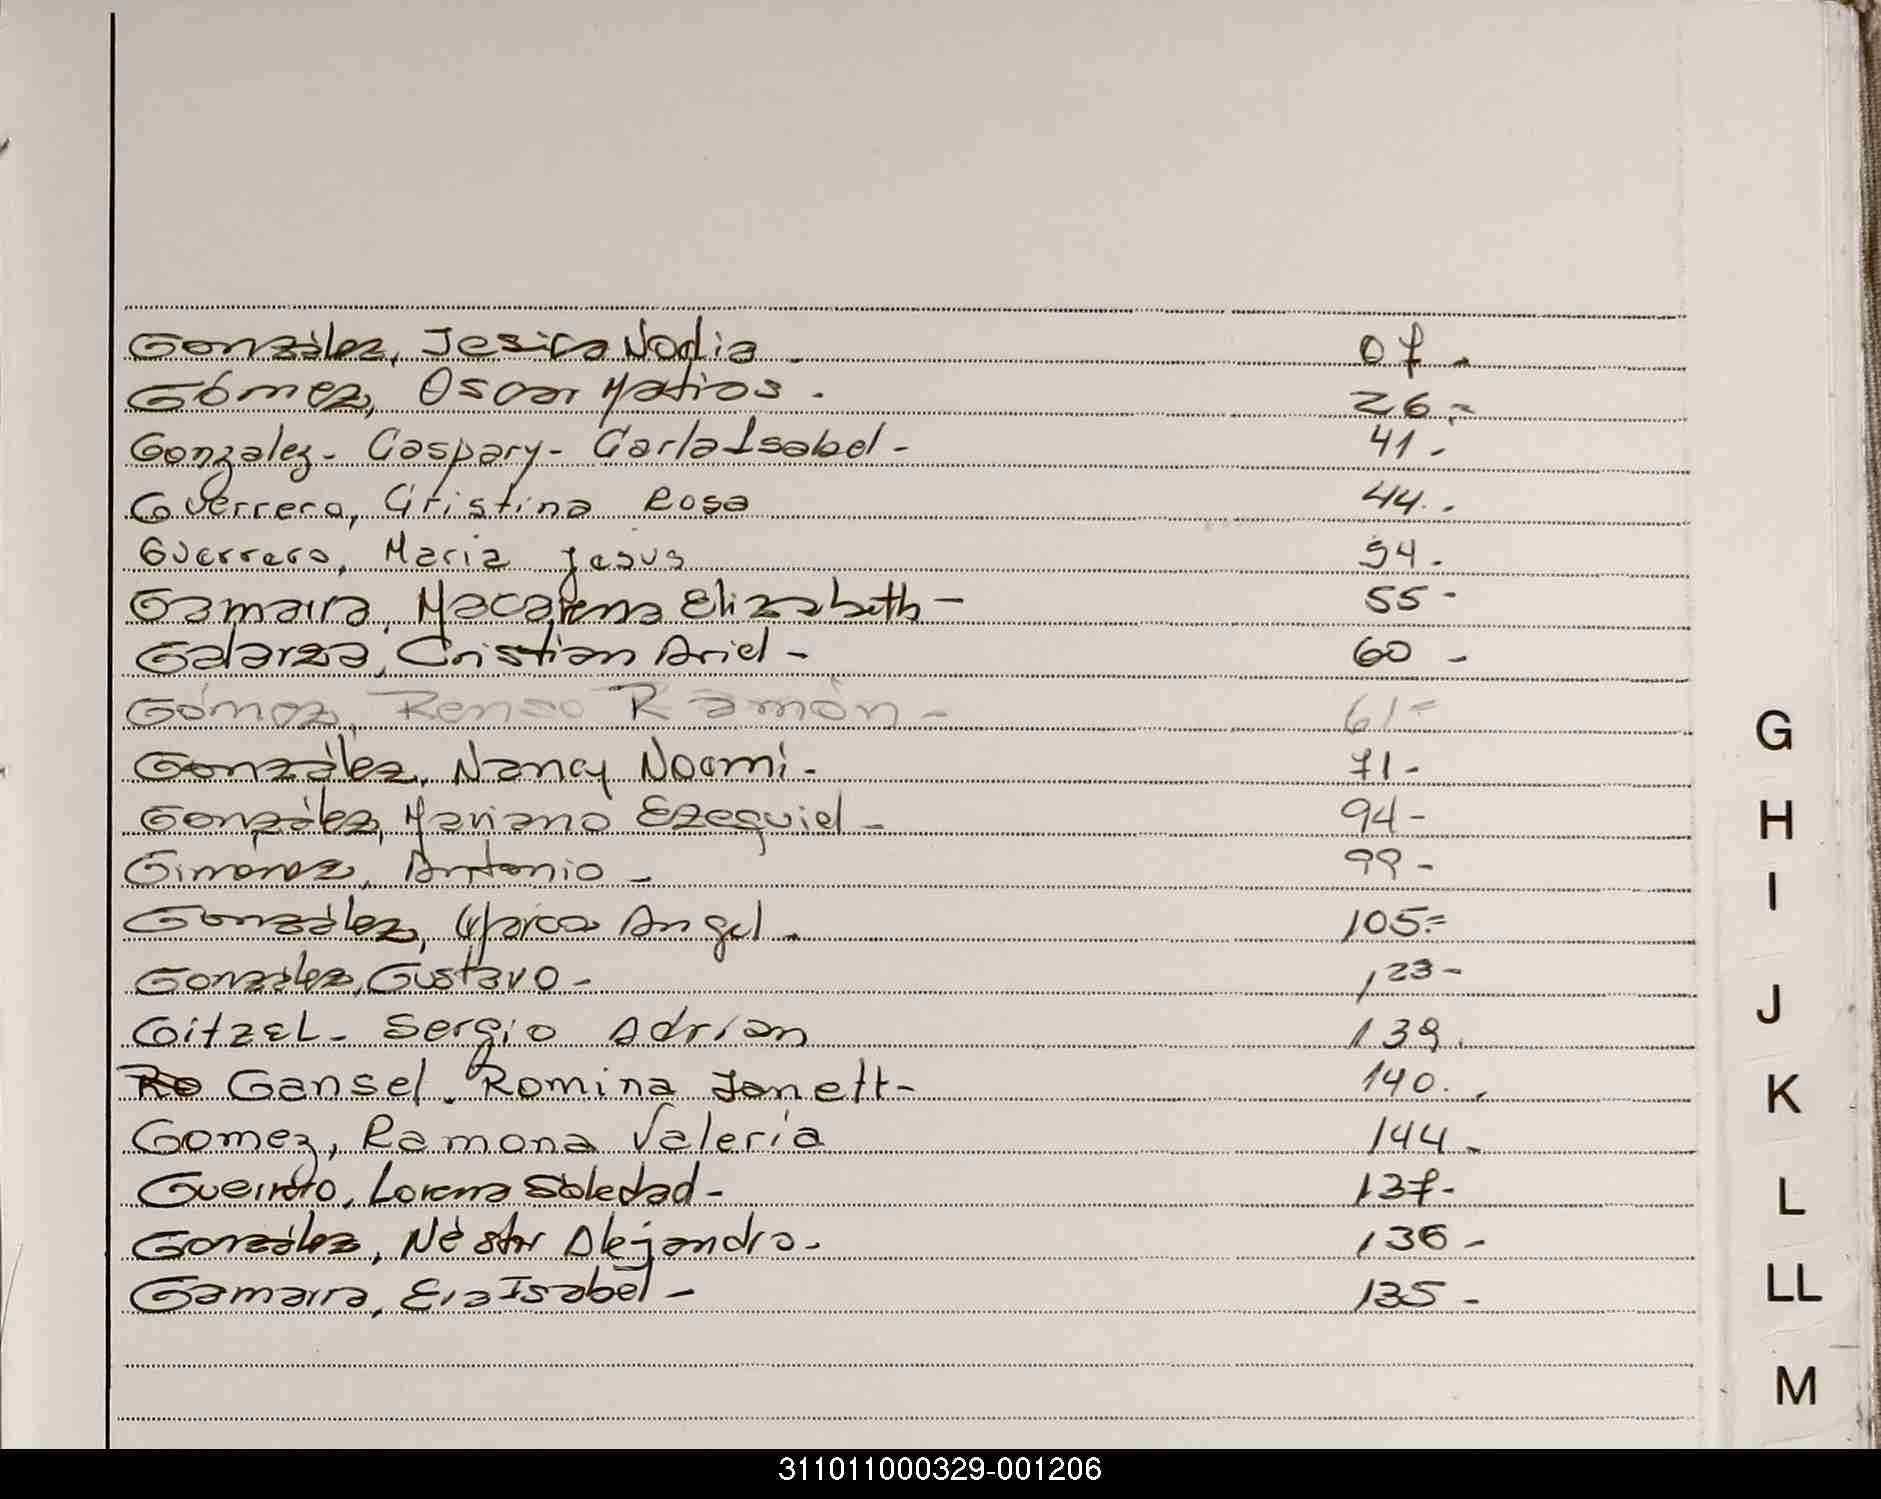 González, Jesica Nadia - 07-
Gómez, Oscar Matias - 26-
Gonzalez - Caspary - Carla Isabel - 41-
Guerrero, Cristina Rosa 44-
Guerrero, Maria Jesus 54-
Gamarra, Macarena Elizabeth - 55-
Galarza, Cristian Ariel - 60-
Gómez, Renso Ramón - 61-
González, Nancy Noemi - 71-
González, Mariano Ezequiel - 94-
Gimenez, Antonio - 99-
González, Marcos Angel - 105-
González, Gustavo - 123-
Goitzel - Sergio Adrian 139.
Gansel, Romina Janett - 140-
Gomez, Ramona Valeria 144-
Lorena Soledad - 137-
González, Néstor Alejandro - 136-
Gamarra, Eva Isabel - 135-
G
H
I
J
K
L
LL
M
311011000329-001206